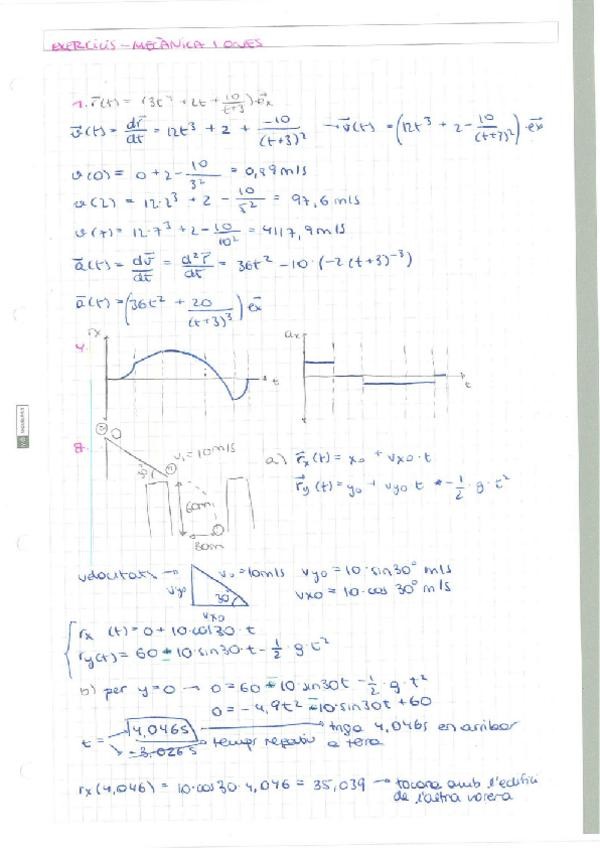 EXERCICIS – MECÀNICA I ONES
1. r⃗(t) = (3t⁴ + 2t + 10/(t+3))·e⃗x
v⃗(t) = dr⃗/dt = 12t³ + 2 + -10/(t+3)² → v⃗(t) = (12t³ + 2 - 10/(t+3)²)·e⃗x
v(0) = 0 + 2 - 10/3² = 0,89 m/s
v(2) = 12·2³ + 2 - 10/5² = 97,6 m/s
v(7) = 12·7³ + 2 - 10/10² = 4117,9 m/s
a⃗(t) = dv⃗/dt = d²r⃗/dt = 36t² - 10·(-2(t+3)⁻³)
a⃗(t) = (36t² + 20/(t+3)³) e⃗x
4. rx t ax t
8. 30° v₁ = 10 m/s 60m 30m
a) r⃗x(t) = x₀ + vx₀·t
r⃗y(t) = y₀ + vy₀ t - 1/2·g·t²
velocitats → vy₀ v₀ = 10 m/s 30° vx₀
vy₀ = 10·sin30° m/s
vx₀ = 10·cos 30° m/s
rx (t) = 0 + 10·cos30·t
ry(t) = 60 - 10·sin30·t - 1/2·g·t²
b) per y=0 → 0 = 60 - 10·sin30t - 1/2·g·t²
0 = -4,9t² - 10·sin30t + 60
t = 4,046s → triga 4,046s en arribar a terra
-3,026s → temps negatiu
rx(4,046) = 10·cos30·4,046 = 35,039 → tocarà amb l'edifici
de l'altra vorera